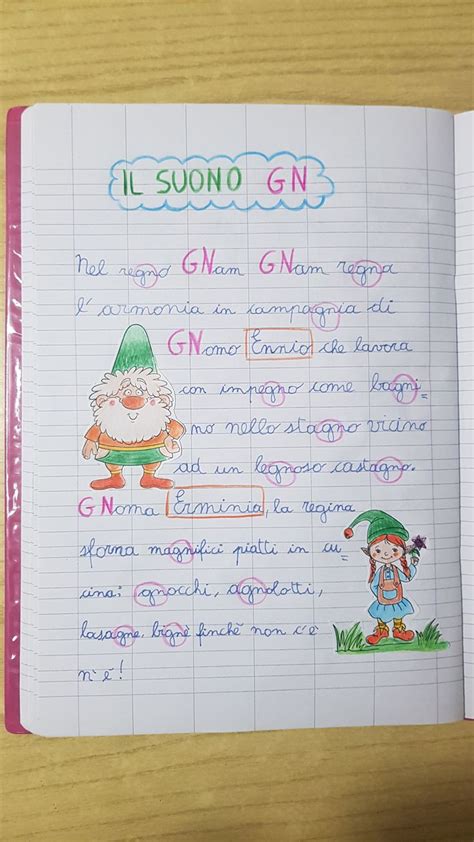 IL SUONO GN
Nel regno GNam GNam regna
l'armonia in campagnia di
GNomo Ennio che lavora
con impegno come bagni=
no nello stagno vicino
ad un legnoso castagno.
GNoma Erminia, la regina
sforna magnifici piatti in cu=
cina: gnocchi, agnolotti,
lasagne, bignè finchè non c'è
n'è!